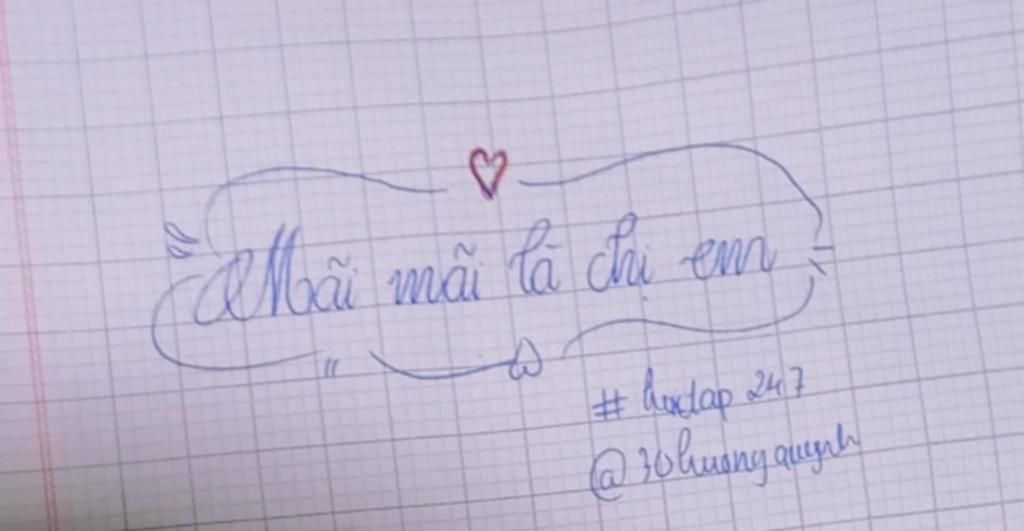 Mãi mãi là chị em
# hoctap 247
@ 36 huongquynh